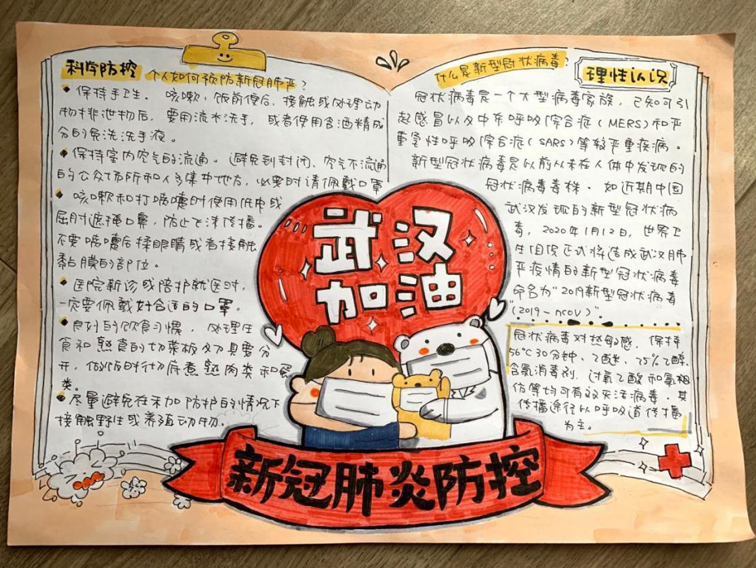 科学防控
个人如何预防新冠肺炎?
保持手卫生。咳嗽,饭前便后,接触或处理动
物排泄物后,要用流水洗手,或者使用含酒精成
分的免洗洗手液。
保持室内空气的流通。避免到封闭、空气不流通
的公众场所和人多集中地方,必要时请佩戴口罩
咳嗽和打喷嚏时使用纸巾或
屈肘遮掩口鼻,防止飞沫传播。
不要喷嚏后揉眼睛或者接触
黏膜的部位。
医院就诊或陪护就医时,
一定要佩戴好合适的口罩。
良好的饮食习惯,处理生
食和熟食的切菜板及刀具要分
开,做饭时彻底煮熟肉类和蛋
类。
尽量避免在未加防护的情况下
接触野生或养殖动物。
什么是新型冠状病毒?
理性认识
冠状病毒是一个大型病毒家族,已知可引
起感冒以及中东呼吸综合症(MERS)和严
重急性呼吸综合症(SARS)等较严重疾病。
新型冠状病毒是以前从未在人体中发现的
冠状病毒毒株。如近期中国
武汉发现的新型冠状病
毒,2020年1月12日,世界卫
生组织正式将造成武汉肺
炎疫情的新型冠状病毒
命名为"2019新型冠状病毒
(2019-nCoV)"
冠状病毒对热敏感,保持
56℃30分钟、乙醚、75%乙醇、
含氯消毒剂、过氧乙酸和氯相
仿等均可有效灭活病毒,其
传播途径以呼吸道传播
为主。
武汉
加油
新冠肺炎防控